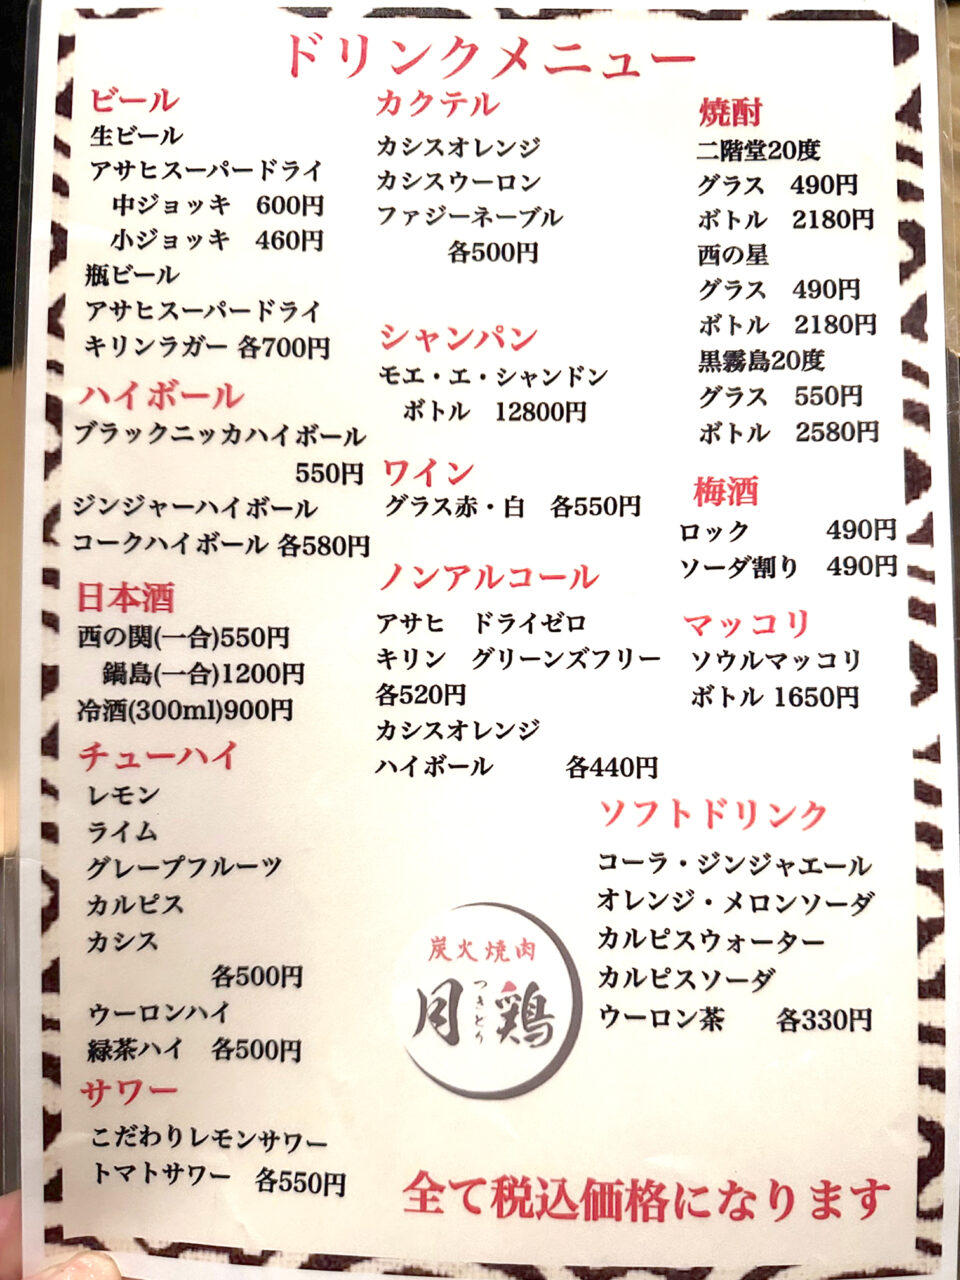 ドリンクメニュー
ビール
生ビール
アサヒスーパードライ
中ジョッキ 600円
小ジョッキ 460円
瓶ビール
アサヒスーパードライ
キリンラガー 各700円
ハイボール
ブラックニッカハイボール
550円
ジンジャーハイボール
コークハイボール 各580円
日本酒
西の関(一合)550円
鍋島(一合)1200円
冷酒(300ml)900円
チューハイ
レモン
ライム
グレープフルーツ
カルピス
カシス
各500円
ウーロンハイ
緑茶ハイ 各500円
サワー
こだわりレモンサワー
トマトサワー 各550円
カクテル
カシスオレンジ
カシスウーロン
ファジーネーブル
各500円
シャンパン
モエ・エ・シャンドン
ボトル 12800円
ワイン
グラス赤・白 各550円
ノンアルコール
アサヒ ドライゼロ
キリン グリーンズフリー
各520円
カシスオレンジ
ハイボール 各440円
焼酎
二階堂20度
グラス 490円
ボトル 2180円
西の星
グラス 490円
ボトル 2180円
黒霧島20度
グラス 550円
ボトル 2580円
梅酒
ロック 490円
ソーダ割り 490円
マッコリ
ソウルマッコリ
ボトル 1650円
ソフトドリンク
コーラ・ジンジャエール
オレンジ・メロンソーダ
カルピスウォーター
カルピスソーダ
ウーロン茶 各330円
炭火焼肉
月鶏
つきとり
全て税込価格になります